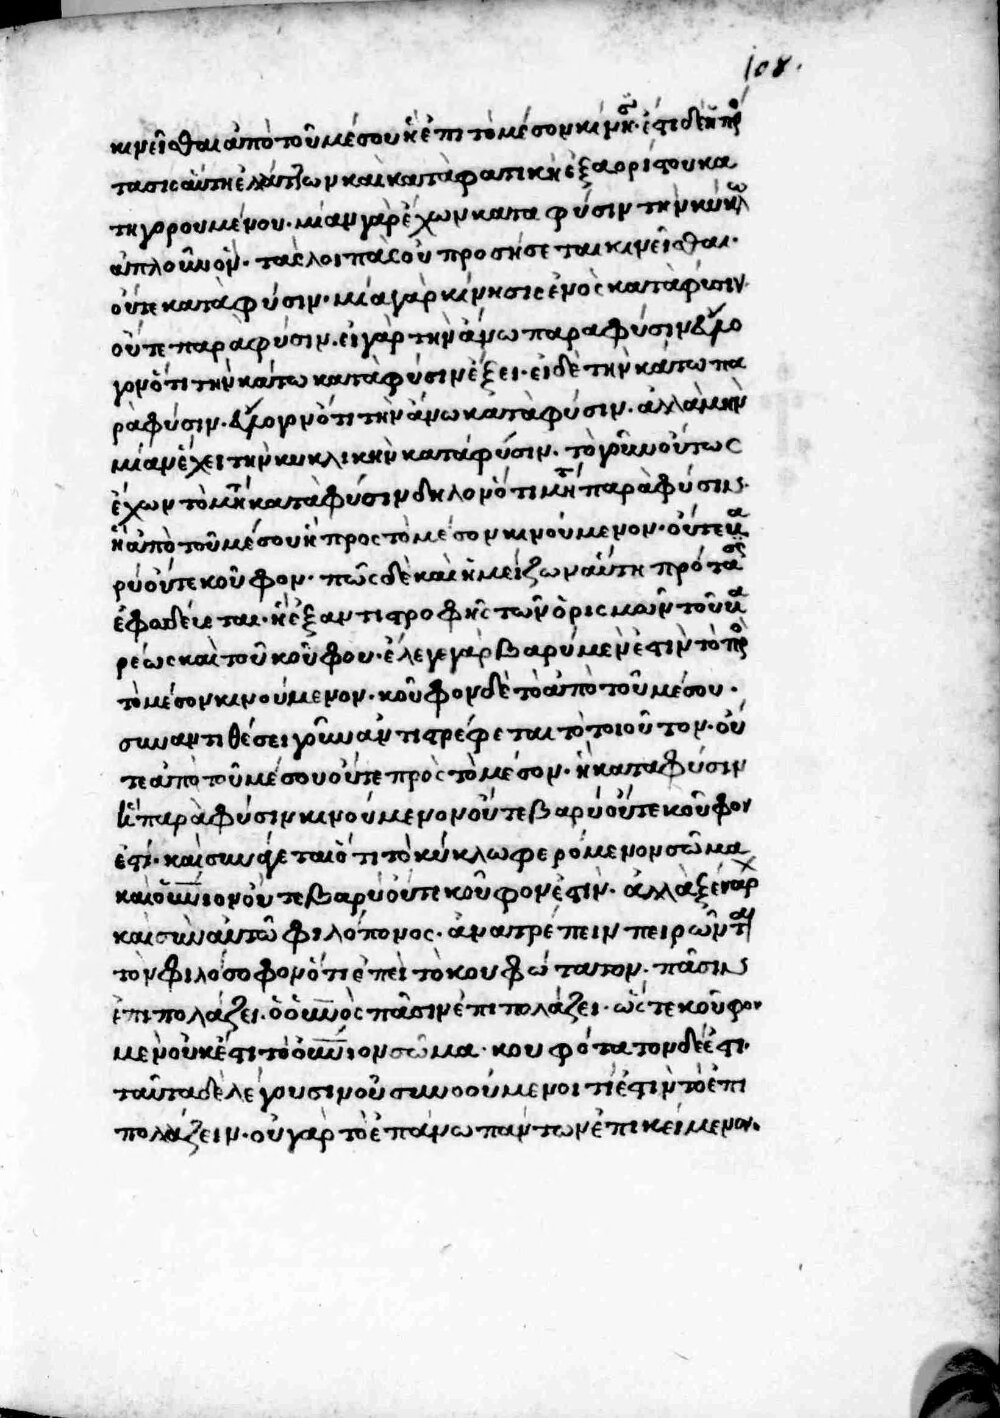 108.
κινεῖσθαι ἀπὸ τοῦ μέσου ἢ ἐπὶ τὸ μέσον κίνησιν. ἔστι δὲ ἡ πρό
τασις αὕτη ἐλάττων καὶ καταφατικὴ ἐξ ἀορίστου κα
τηγορουμένου. μίαν γὰρ ἔχων κατα φύσιν τὴν κύκλω
ἁπλοῦν ὂν. τὰς λοιπὰς οὐ προσήσεται κινεῖσθαι.
οὔτε κατὰ φύσιν. μία γὰρ κίνησις ἑνὸς κατὰ φύσιν.
οὔτε παρὰ φύσιν. εἰ γὰρ τὴν ἄνω παρα φύσιν δῆλο
νότι τὴν κάτω κατὰ φύσιν ἕξει. εἰ δὲ τὴν κάτω πα
ρὰ φύσιν. δῆλονότι τὴν ἄνω κατὰ φύσιν. ἀλλὰ μὴν
μίαν ἔχει τὴν κυκλικὴν κατὰ φύσιν. τὸ γοῦν οὕτως
ἔχων τὸ μήτε κατὰ φύσιν δηλονότι μήτε παρὰ φύσιν
ἢ ἀπὸ τοῦ μέσου ἢ προς τὸ μέσον κινούμενον. οὔτε βα
ρύ οὔτε κοῦφον. πῶς δὲ καὶ ἡ μείζων αὕτη πρότασις
ἐφοδεύεται. ἢ ἐξ αντιστροφῆς τῶν ὁρισμῶν τοῦ βα
ρέως καὶ τοῦ κούφου. ἔλεγε γὰρ βαρὺ μὲν ἐστὶν τὸ πρὸς
τὸ μέσον κινούμενον. κοῦφον δὲ τὸ ἀπὸ τοῦ μέσου.
συν αντιθέσει γοῦν ἀντιστρέφεται τὸ τοιοῦτον. οὔ
τε ἀπὸ τοῦ μέσου οὔτε πρὸς τὸ μέσον. ἢ κατα φύσιν
ἢ παρὰ φύσιν κινούμενον οὔτε βαρὺ οὔτε κοῦφον
ἐστί. καὶ συνάγεται ὅτι τὸ κύκλω φερόμενον σῶμα
καὶ οὐνιον οὔτε βαρὺ οὔτε κοῦφον ἐστὶν. ἀλλὰ ξέναρχ
καὶ σὺν αὐτῶ φιλόπονος. ἀνατρέπειν πειρῶνται
τὸν φιλόσοφον ὅτι ἐπεὶ τὸ κουφώτατον. πᾶσιν
ἐπιπολάζει. ὁ οὐνὸς πᾶσιν ἐπιπολάζει. ὥστε κοῦφον
μὲν οὐκ ἔστι τὸ οὐνιον σῶμα. κουφότατον δὲ ἔστι.
ταῦτα δὲ λέγουσιν οὐ συννοούμενοι τί ἐστὶν τὸ ἐπι
πολάζειν. οὐ γὰρ τὸ ἐπάνω πάντων ἐπικείμενον.